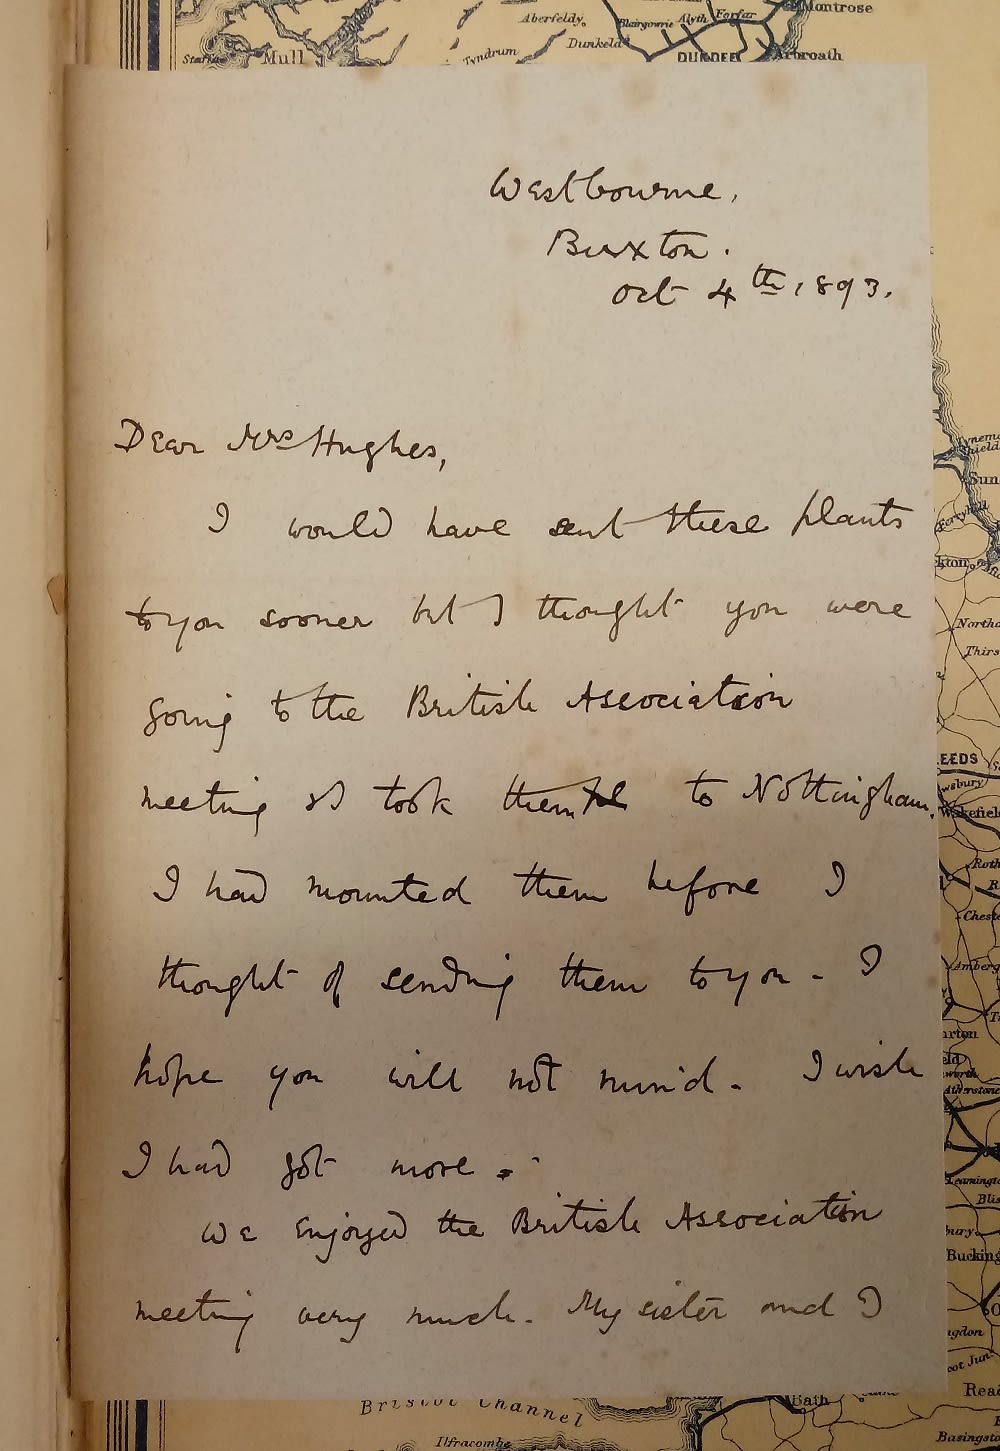 Aberfeldy
Blairgowrie
Alyth
Forfar
Montrose
Mull
Tyndrum
Dunkeld
DUNDEE
Arbroath
Westbourne,
Buxton.
Oct 4th 1893.
Dear Mrs Hughes,
I would have sent these plants
to you sooner but I thought you were
going to the British Association
meeting so I took them to Nottingham.
I had mounted them before I
thought of sending them to you - I
hope you will not mind. I wish
I had got more.
We enjoyed the British Association
meeting very much. My sister and I
Tynem
hield
Sun
Ferryhill
kton
Northa
Thirs
EEDS
wsbury
Wakefield
Roth
Chest
Amberg
rton
Atherstone
Leamingto
Blis
bury
Bucking
ngdon
oot Jun
Rea
Bristol Channel
Bath
Ilfracombe
Basingsto